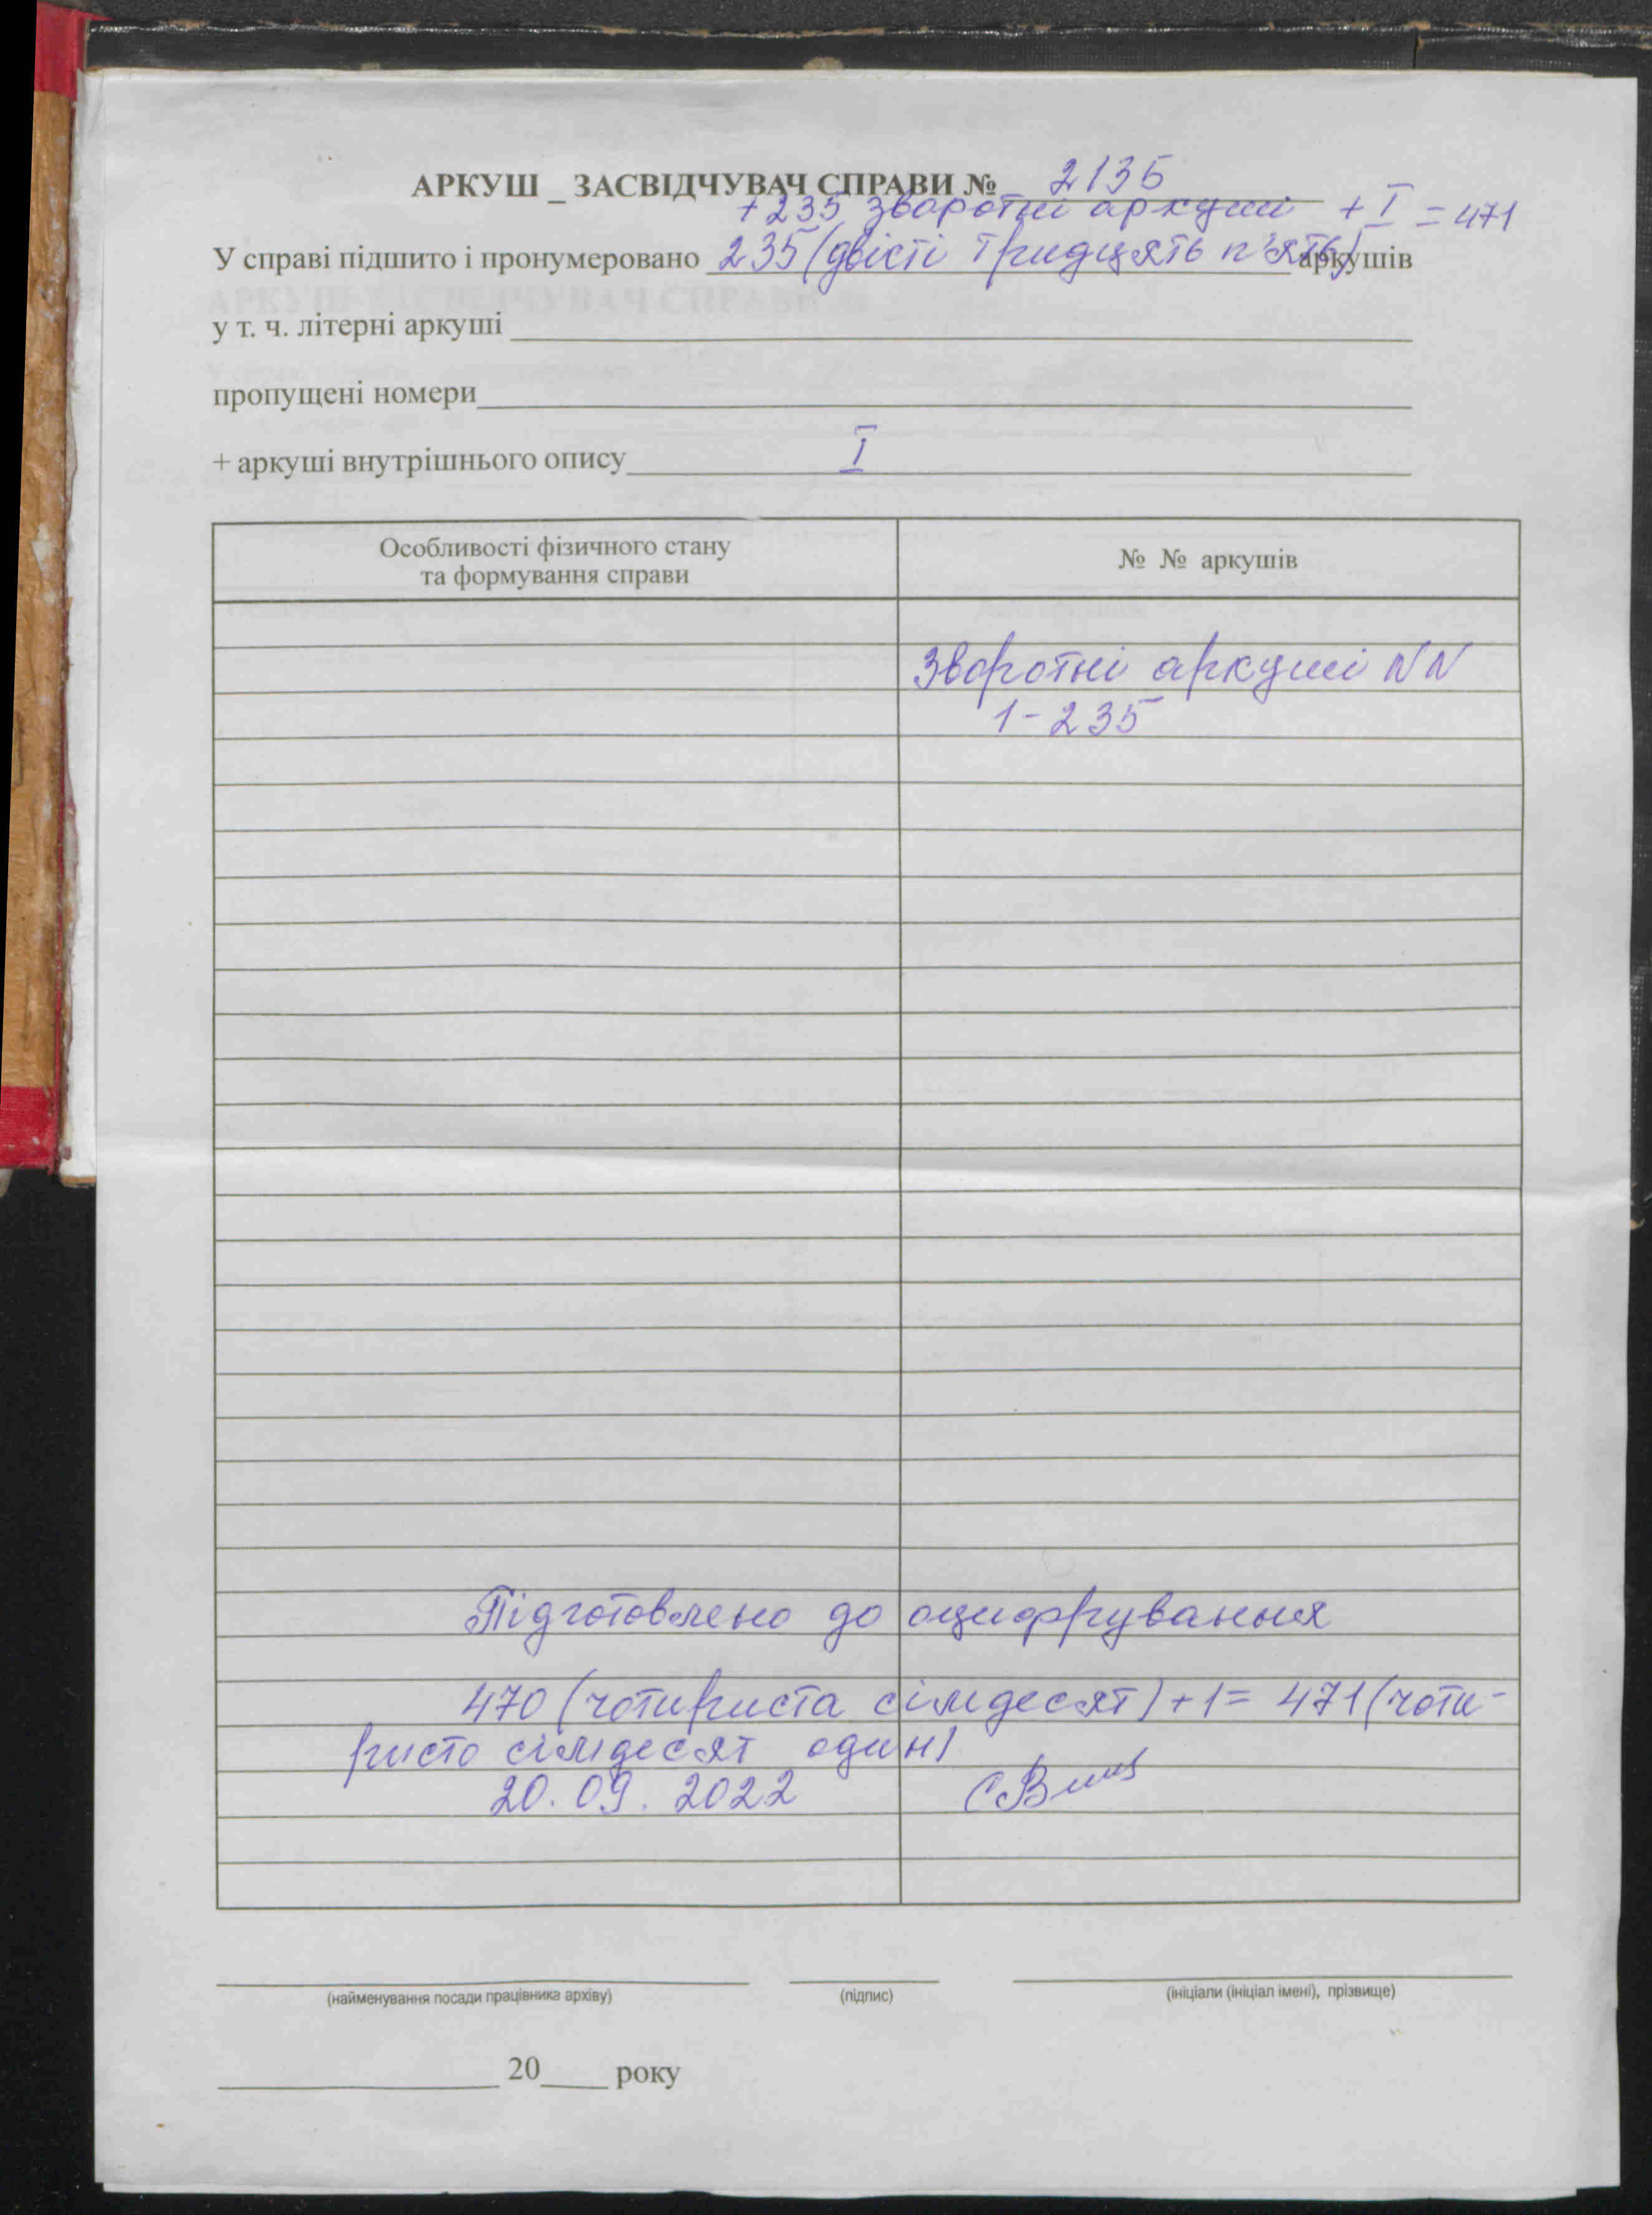 АРКУШ _ ЗАСВІДЧУВАЧ СПРАВИ № 2135
+ 235 зворотні аркуші + I = 471
У справі підшито і пронумеровано 235 (двісті тридцять п'ять) аркушів
у т. ч. літерні аркуші
пропущені номери
+ аркуші внутрішнього опису I
Особливості фізичного стану
та формування справи
№ № аркушів
Зворотні аркуші NN
1-235
Підготовлено до оцифрування
470 (чотириста сімдесят) + 1 = 471 (чоти-
ристо сімдесят один)
20.09.2022
(найменування посади працівника архіву) (підпис) (ініціали (ініціал імені), прізвище)
20 року